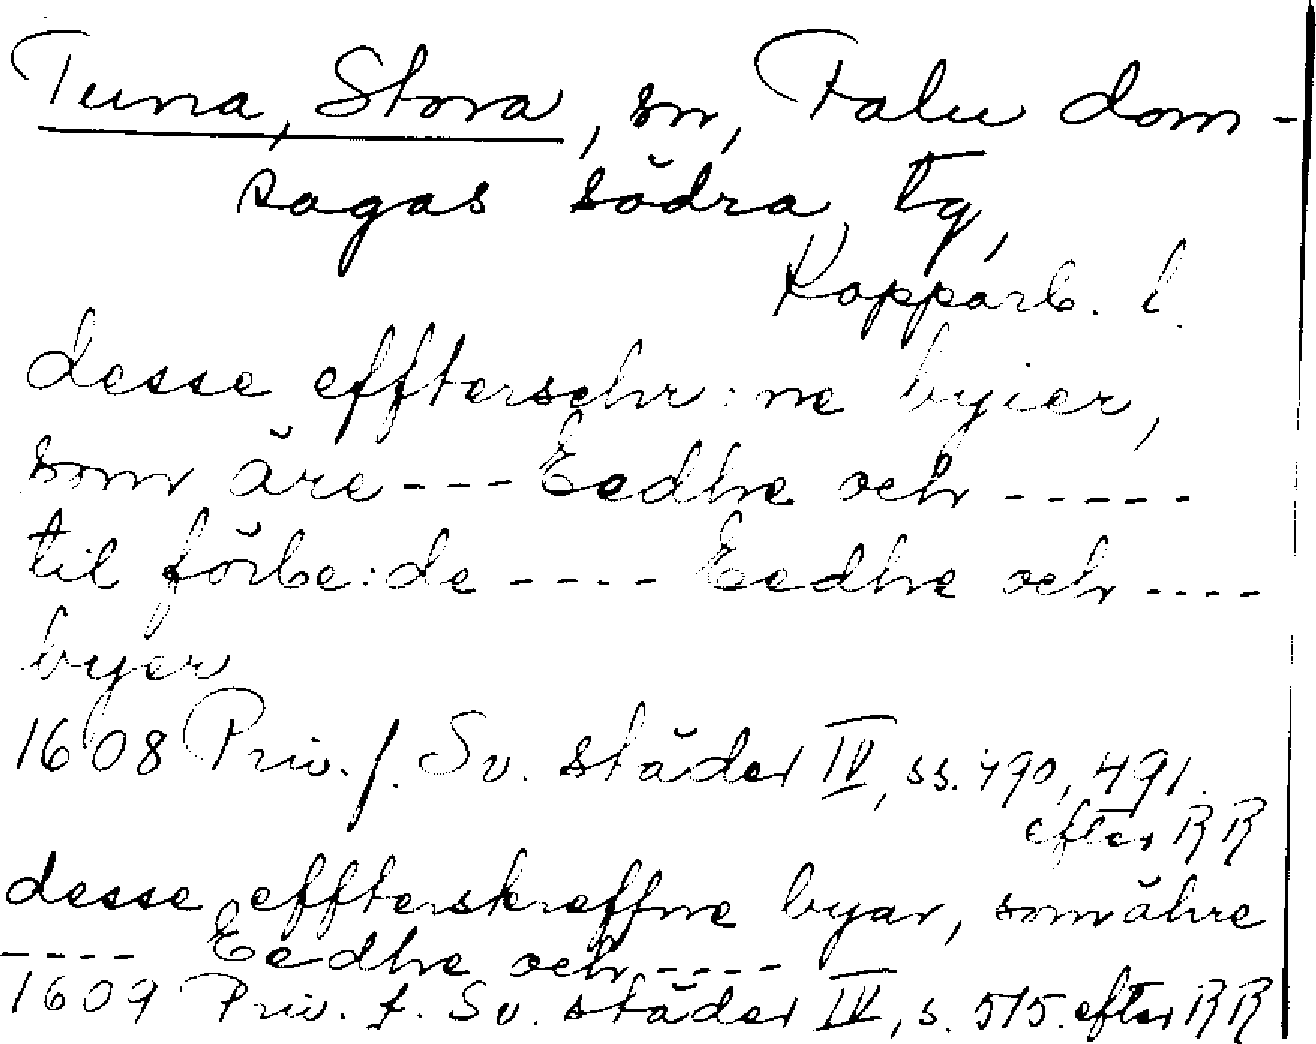 Tuna, Stora, sn, Falu dom-
sagas södra tg,
Kopparb. l.
desse effterschr:ne byier,
som äre --- Eedhe och -----
til förbe:de ---- Eedhe och ----
byer
1608 Priv. f. Sv. städer IV, ss. 490, 491.
efter RR
desse effterskreffne byar, som ähre
---- Eedhe och ----
1609 Priv. f. Sv. städer IV, s. 515. efter RR